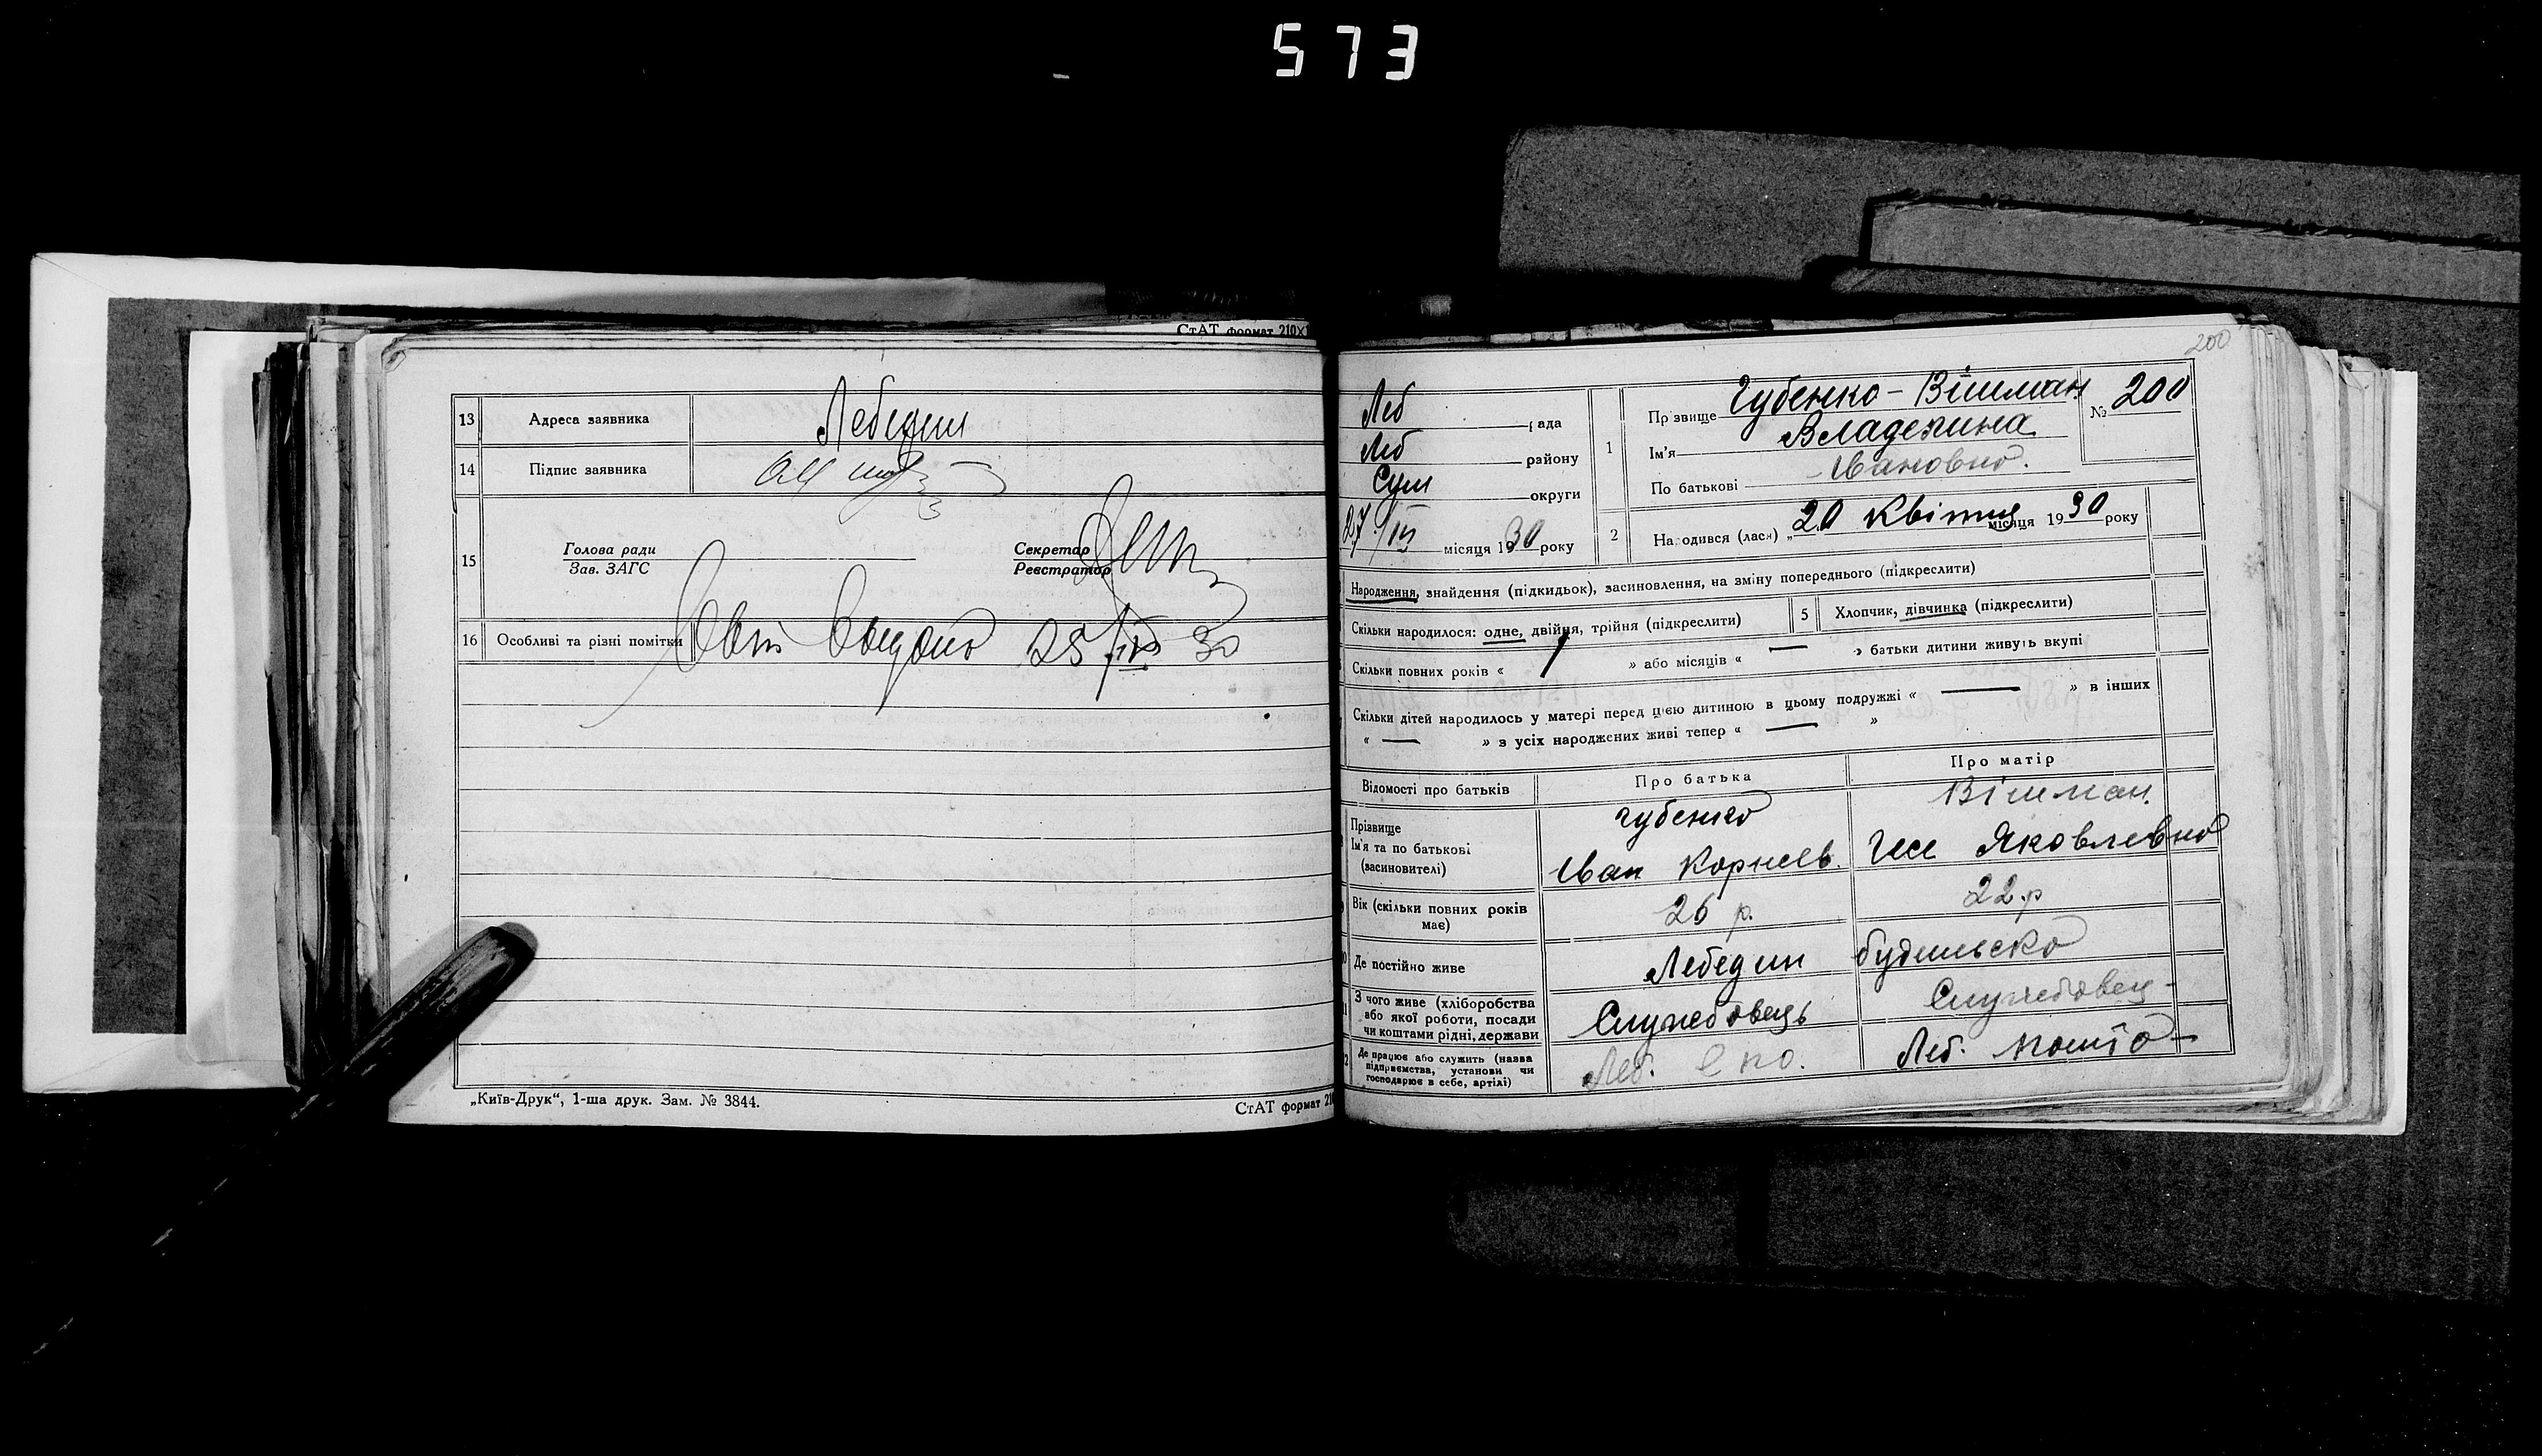 573
СтАТ формат 210X1
13 Адреса заявника Лебедин
14 Підпис заявника
15 Голова ради
Зав. ЗАГС
Секретар
Реєстратор
16 Особливі та різні помітки 30
„Київ-Друк“, 1-ша друк. Зам. № 3844.
СтАТ формат 210
200
Леб рада
Леб району
Сум округи
27/IV місяця 1930 року
1 Прізвище Губенко-Вішман № 200
Ім'я Владенина
По батькові Івановна.
2 Народився (лася) „20 Квітня місяця 1930 року
Народження, знайдення (підкидьок), засиновлення, на зміну попереднього (підкреслити)
Скільки народилося: одне, двійня, трійня (підкреслити) 5 Хлопчик, дівчинка (підкреслити)
Скільки повних років « 1 » або місяців « — » батьки дитини живуть вкупі
Скільки дітей народилось у матері перед цією дитиною в цьому подружжі « — » в інших
« — » з усіх народжених живі тепер « — »
Відомості про батьків Про батька Про матір
Прізвище
Ім'я та по батькові
(засиновителі)
Губенко
Іван Корнеев.
Вішман
Яковлевна
Вік (скільки повних років має) 26 р. 22 р
Де постійно живе Лебедин
З чого живе (хліборобства або якої роботи, посади чи коштами рідні, держави Службовець Службовец-
Де працює або служить (назва підприємства, установи чи господарює в себе, артілі) Леб. Леб. пошта